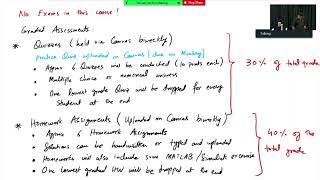 No Exams in this course!
Graded Assessments:
* Quizzes (held via Canvas biweekly)
practice Quiz uploaded on Canvas (due on Monday)
• Approx 6 Quizzes will be conducted (10 points each)
• Multiple choice or numerical answers
• One lowest grade Quiz will be dropped for every
student at the end
30% of total grade
* Homework Assignments (Uploaded on Canvas biweekly)
• Approx 6 Homework Assignments
• Solutions can be handwritten or typed and uploaded
• Homeworks will also include some MATLAB / Simulink exercise
• One lowest graded HW will be dropped at the end
40% of the
total grade